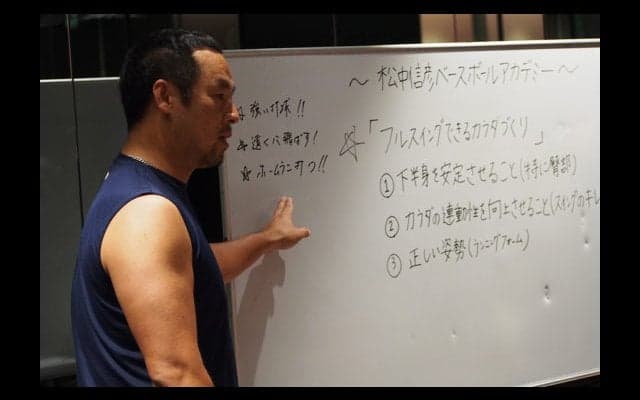 ～ 松中信彦ベースボールアカデミー ～
☆ 強い打球!!
☆ 遠くに飛ばす!
☆ ホームラン打つ!!
☆「フルスイングできるカラダづくり」
① 下半身を安定させること(特に臀部)
② カラダの連動性を向上させること(スイングのキレ
③ 正しい姿勢(ランニングフォーム)